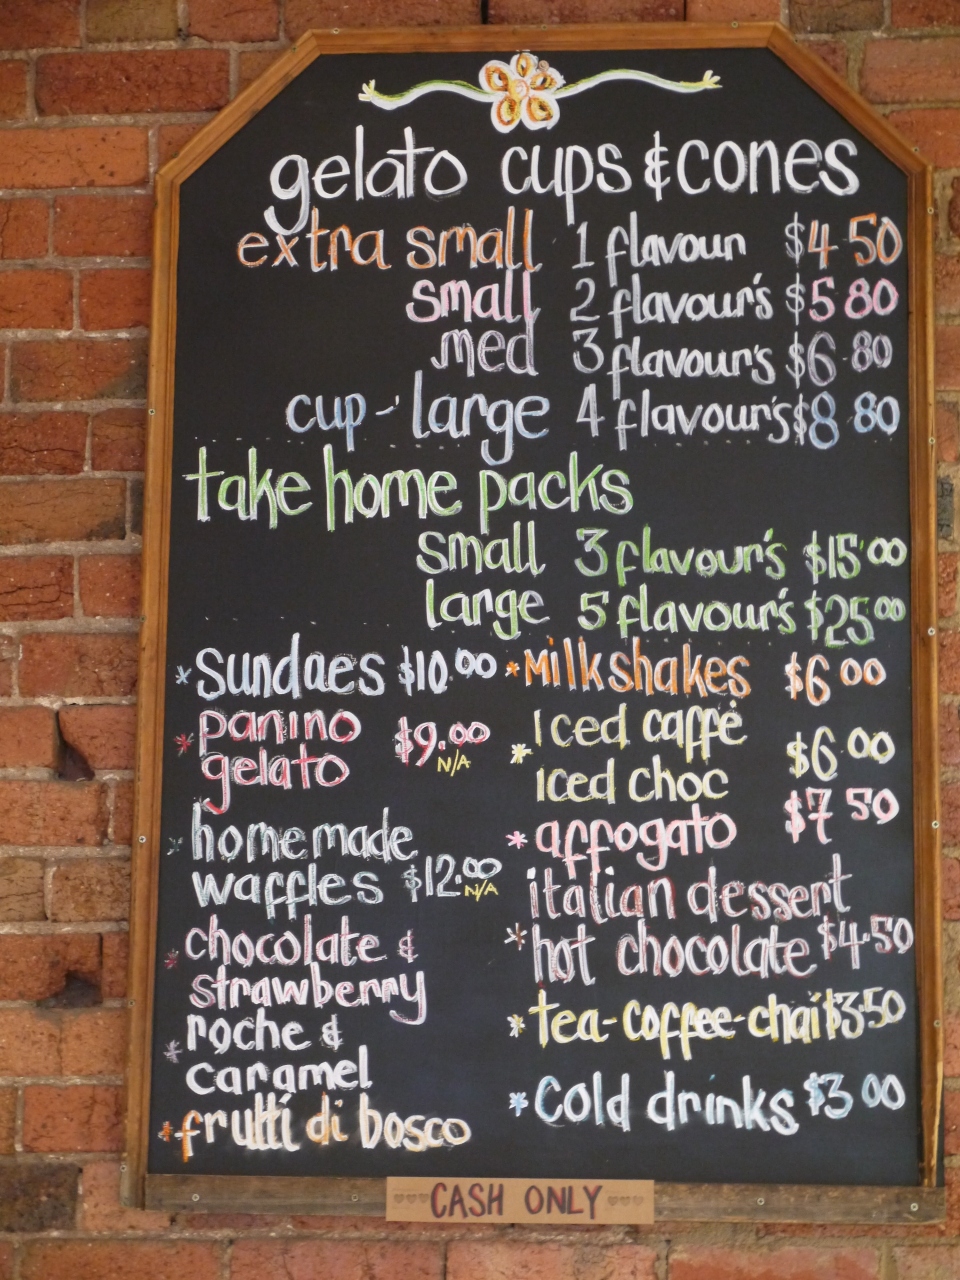 gelato cups & cones
extra small 1 flavour $4.50
small 2 flavour's $5 80
med 3 flavour's $6 80
cup - large 4 flavour's $8 80
take home packs
small 3 flavour's $15.00
large 5 flavour's $25.00
* Sundaes $10.00
* panino $9.00
gelato N/A
* home made
waffles $12.00 N/A
* chocolate &
strawberry
* roche &
caramel
* frutti di bosco
* Milkshakes $6 00
* Iced caffè
Iced choc $6 00
* affogato $7 50
italian dessert
* hot chocolate $4.50
* tea-coffee-chai $3.50
* Cold drinks $3 00
CASH ONLY